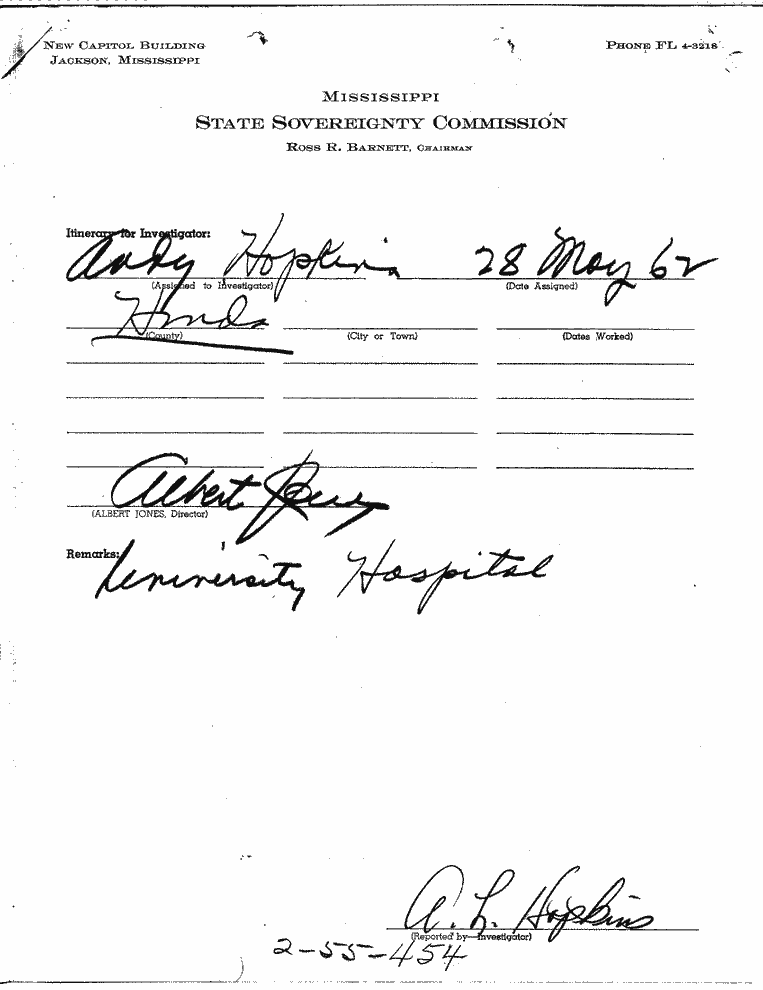 NEW CAPITOL BUILDING
JACKSON, MISSISSIPPI
PHONE FL 4-3218
MISSISSIPPI
STATE SOVEREIGNTY COMMISSION
ROSS R. BARNETT, CHAIRMAN
Itinerary for Investigator:
Andy Hopkins 28 May 62
(Assigned to Investigator) (Date Assigned)
Hinds
(County) (City or Town) (Dates Worked)
Albert Jones
(ALBERT JONES, Director)
Remarks:
University Hospital
A. L. Hopkins
(Reported by—Investigator)
2-55-454